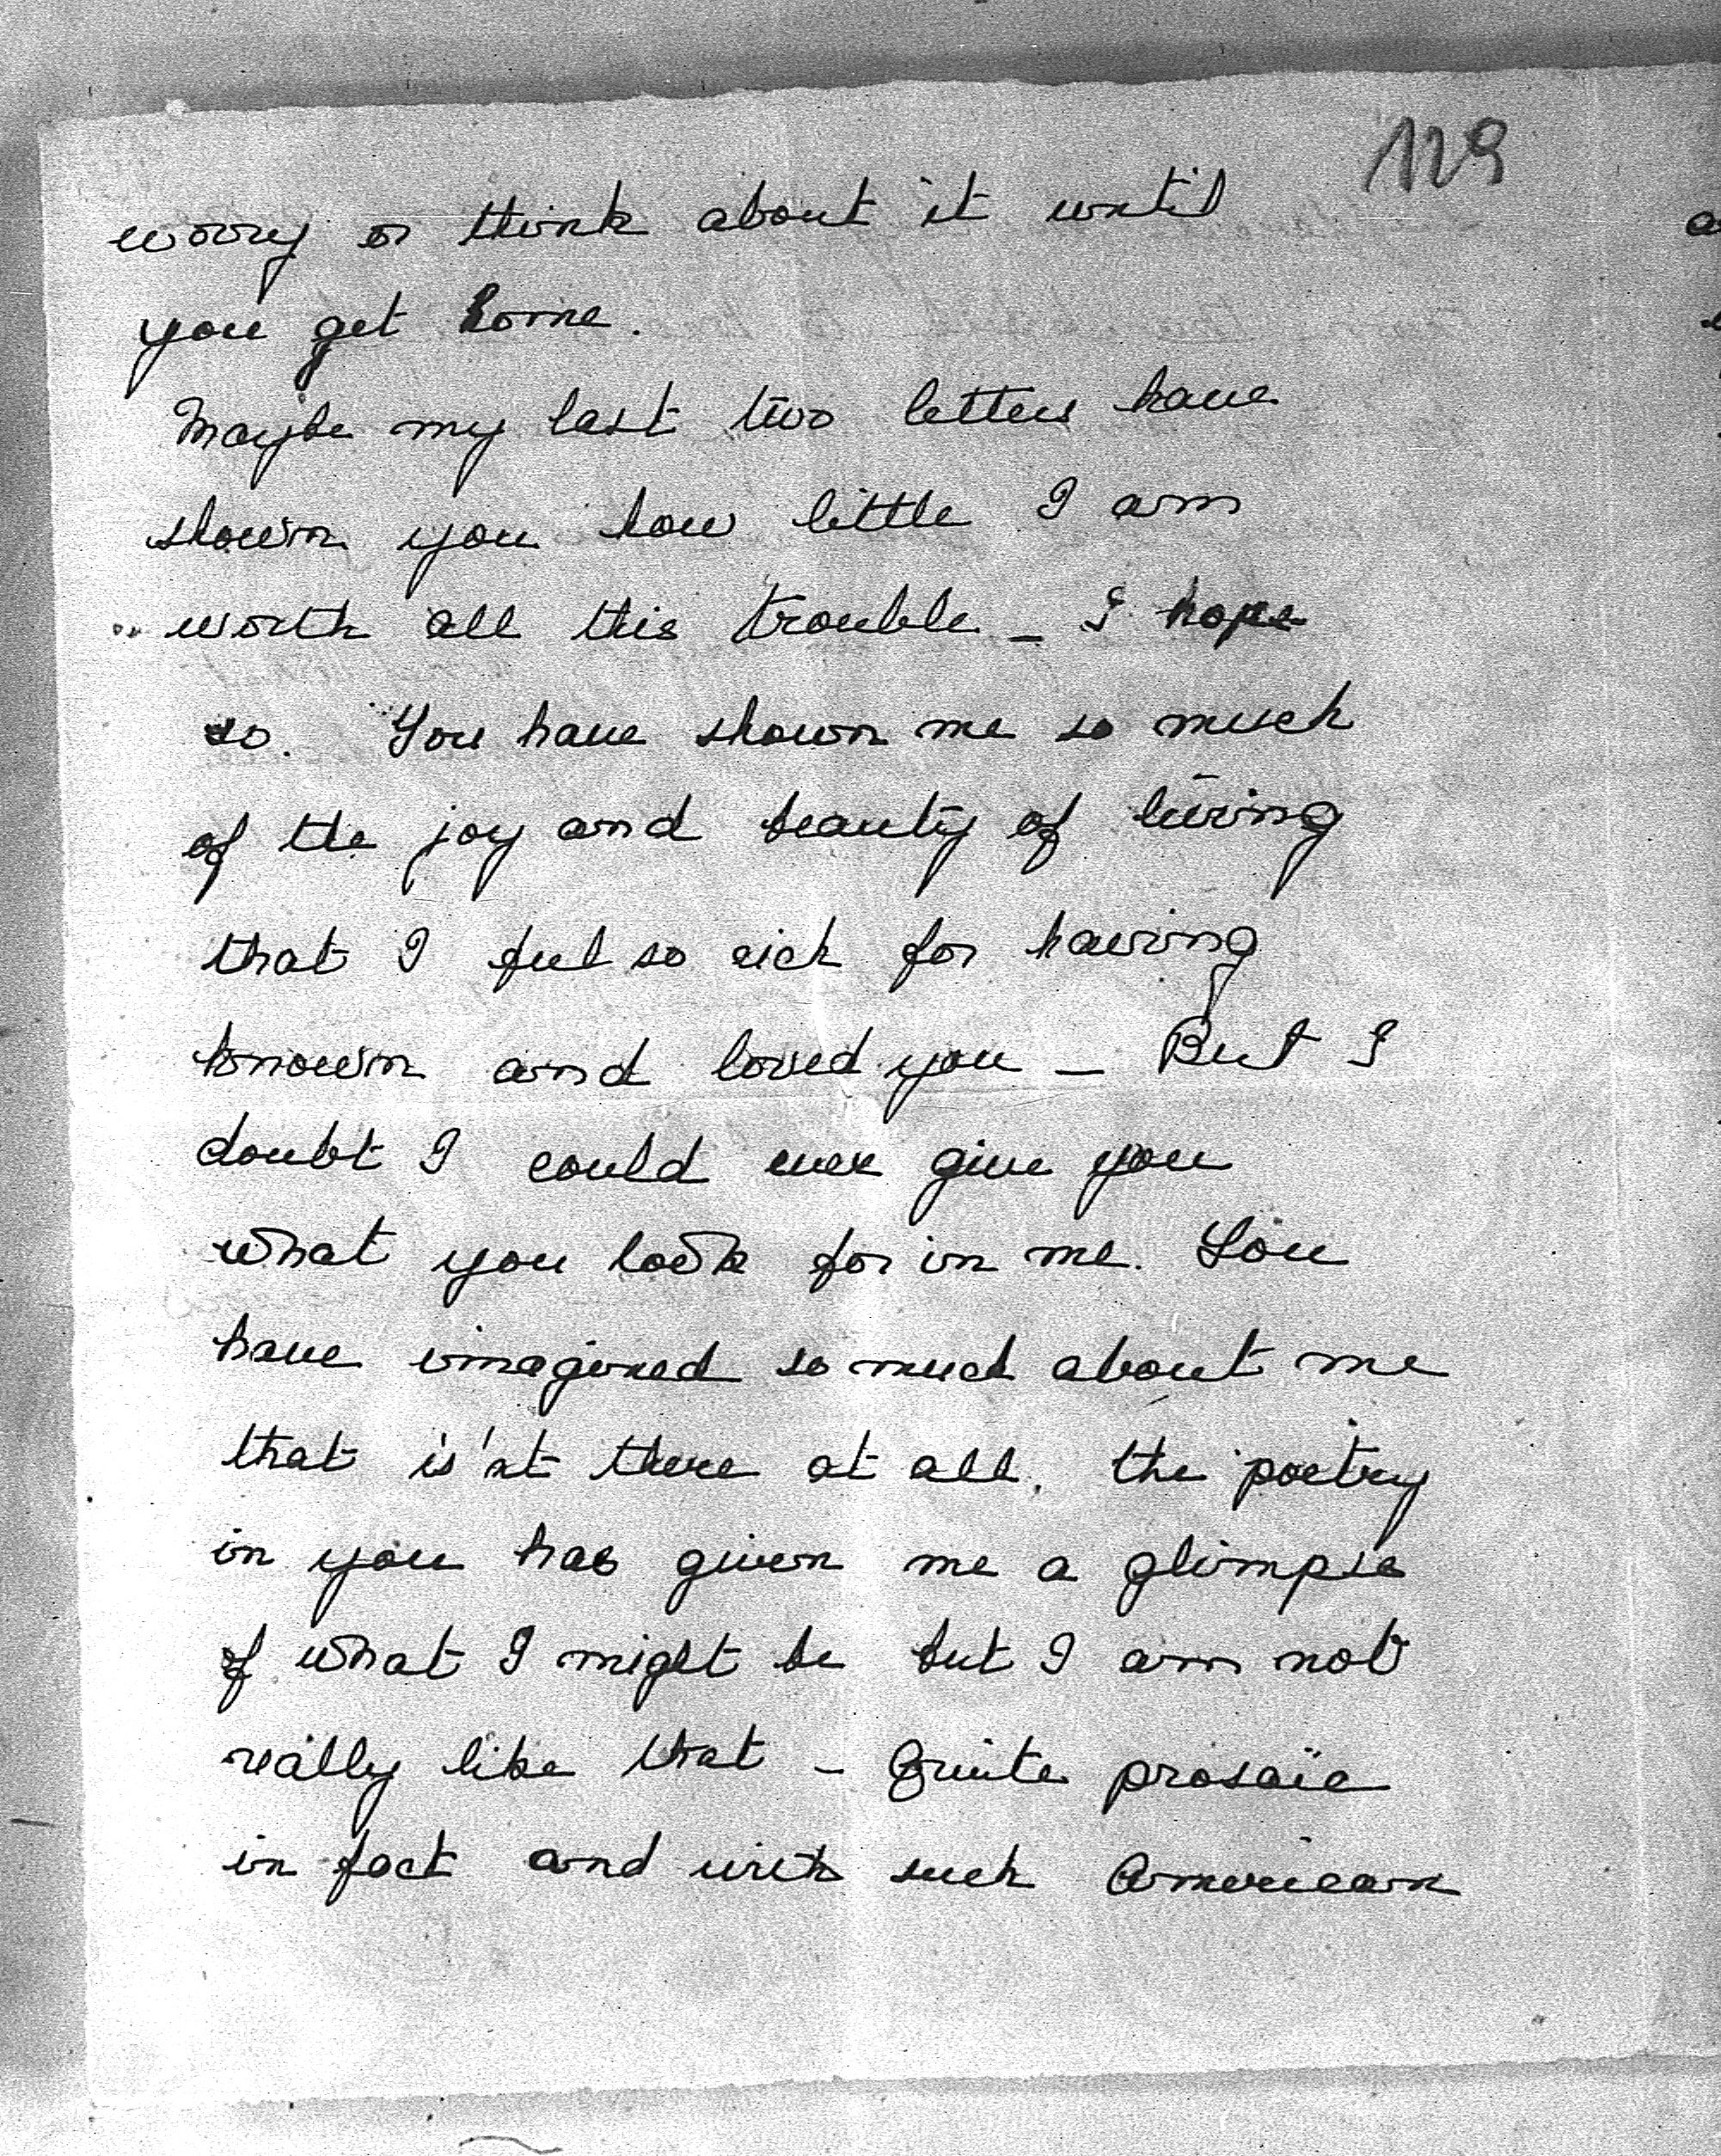 129
worry or think about it until
you get home.
Maybe my last two letters have
shown you how little I am
worth all this trouble - I hope
so. You have shown me so much
of the joy and beauty of living
that I feel so rich for having
known and loved you - But I
doubt I could ever give you
what you look for in me. You
have imagined so much about me
that is'nt there at all. the poetry
in you has given me a glimpse
of what I might be but I am not
really like that - Quite prosaïc
in fact and with such American